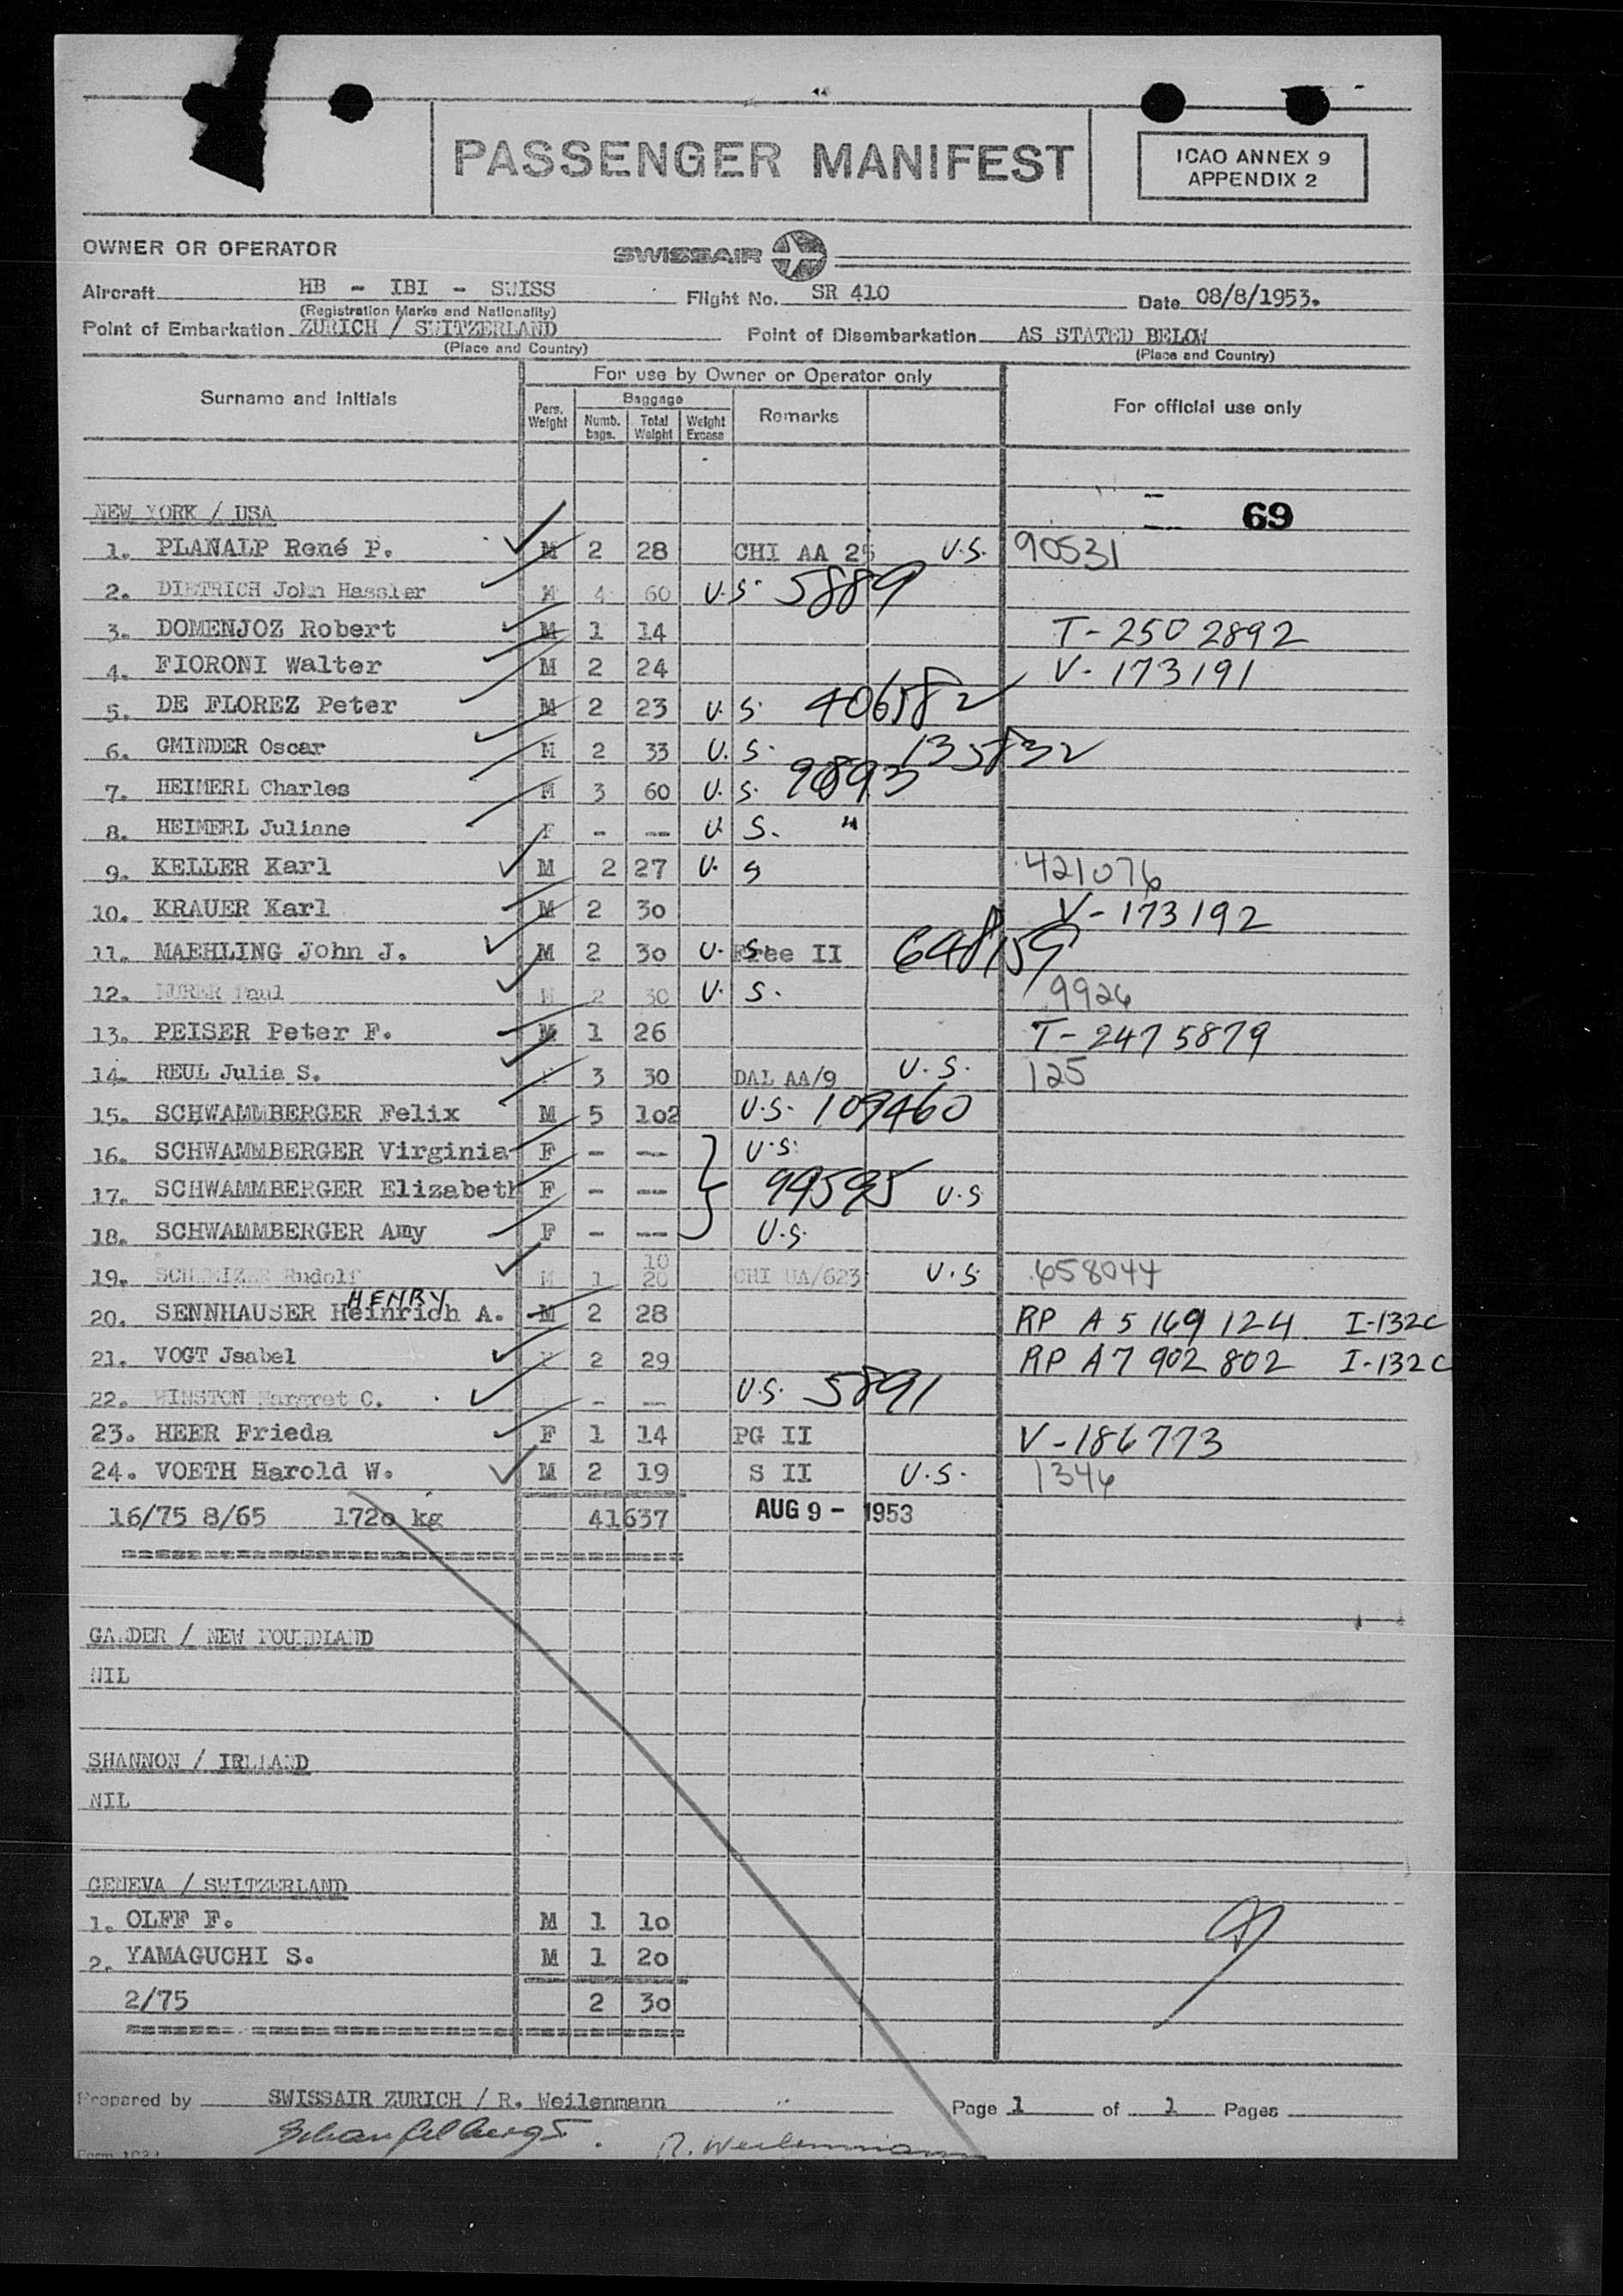 PASSENGER MANIFEST
ICAO ANNEX 9
APPENDIX 2
OWNER OR OPERATOR SWISSAIR
Aircraft HB - IBI - SWISS Flight No. SR 410 Date 08/8/1953.
(Registration Marks and Nationality)
Point of Embarkation ZURICH / SWITZERLAND Point of Disembarkation AS STATED BELOW
(Place and Country) (Place and Country)
For use by Owner or Operator only
Surname and Initials Pers. Weight Baggage Numb. bags. Total Weight Weight Excess Remarks For official use only
NEW YORK / USA 69
1. PLANALP René P. M 2 28 CHI AA 25 U.S. 90531
2. DIETRICH John Hassler M 4 60 U.S. 5889
3. DOMENJOZ Robert M 1 14 T-2502892
4. FIORONI Walter M 2 24 V-173191
5. DE FLOREZ Peter M 2 23 U.S. 406582
6. GMINDER Oscar M 2 33 U.S. 135832
7. HEIMERL Charles M 3 60 U.S. 9893
8. HEIMERL Juliane F - -- U.S. "
9. KELLER Karl M 2 27 U.S 421076
10. KRAUER Karl M 2 30 V-173192
11. MAEHLING John J. M 2 30 U.S. Free II 648159
12. Paul M 2 30 U.S. 9926
13. PEISER Peter F. M 1 26 T-2475879
14. REUL Julia S. F 3 30 DAL AA/9 U.S. 125
15. SCHWAMMBERGER Felix M 5 102 U.S. 109460
16. SCHWAMMBERGER Virginia F - -- U.S.
17. SCHWAMMBERGER Elizabeth F - -- 99595 U.S
18. SCHWAMMBERGER Amy F - -- U.S.
10
19. Rudolf M 1 20 CHI UA/623 U.S 658044
HENRY
20. SENNHAUSER Heinrich A. M 2 28 RP A5 169 124 I-132C
21. VOGT Jsabel 2 29 RP A7 902 802 I-132C
22. WINSTON Margret C. - -- U.S. 5891
23. HEER Frieda F 1 14 PG II V-186773
24. VOETH Harold W. M 2 19 S II U.S. 1346
16/75 8/65 1720 kg 41 637 AUG 9 - 1953
GANDER / NEW FOUNDLAND
NIL
SHANNON / IRLLAND
NIL
GENEVA / SWITZERLAND
1. OLFF F. M 1 10
2. YAMAGUCHI S. M 1 20
2/75 2 30
Prepared by SWISSAIR ZURICH / R. Weilenmann Page 1 of 1 Pages
R. Weilenmann